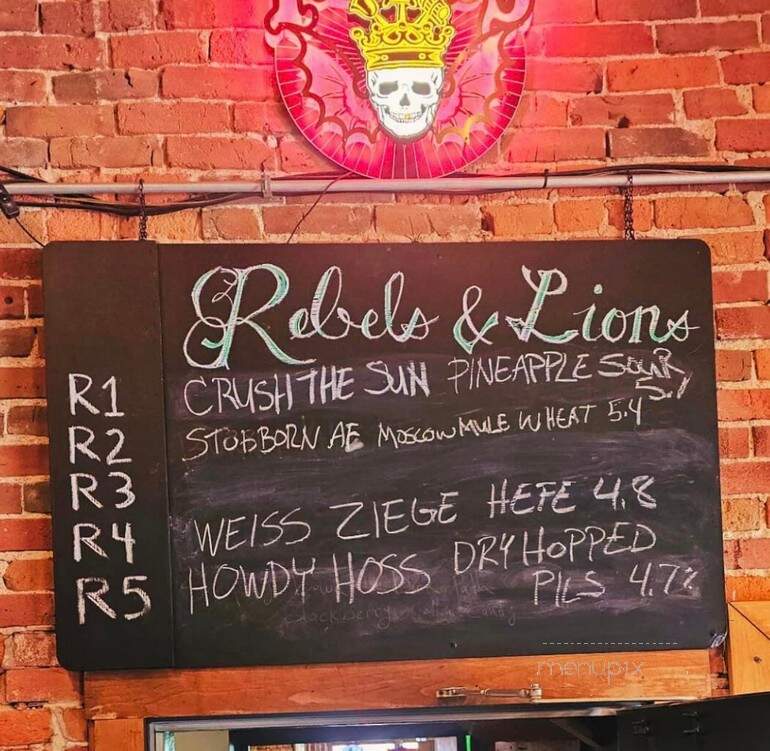 Rebels & Lions
R1 CRUSH THE SUN PINEAPPLE SOUR
5.1
R2 STUBBORN AE MOSCOW MULE WHEAT 5.4
R3
R4 WEISS ZIEGE HEFE 4.8
R5 HOWDY HOSS DRY HOPPED
PILS 4.7%
menupix